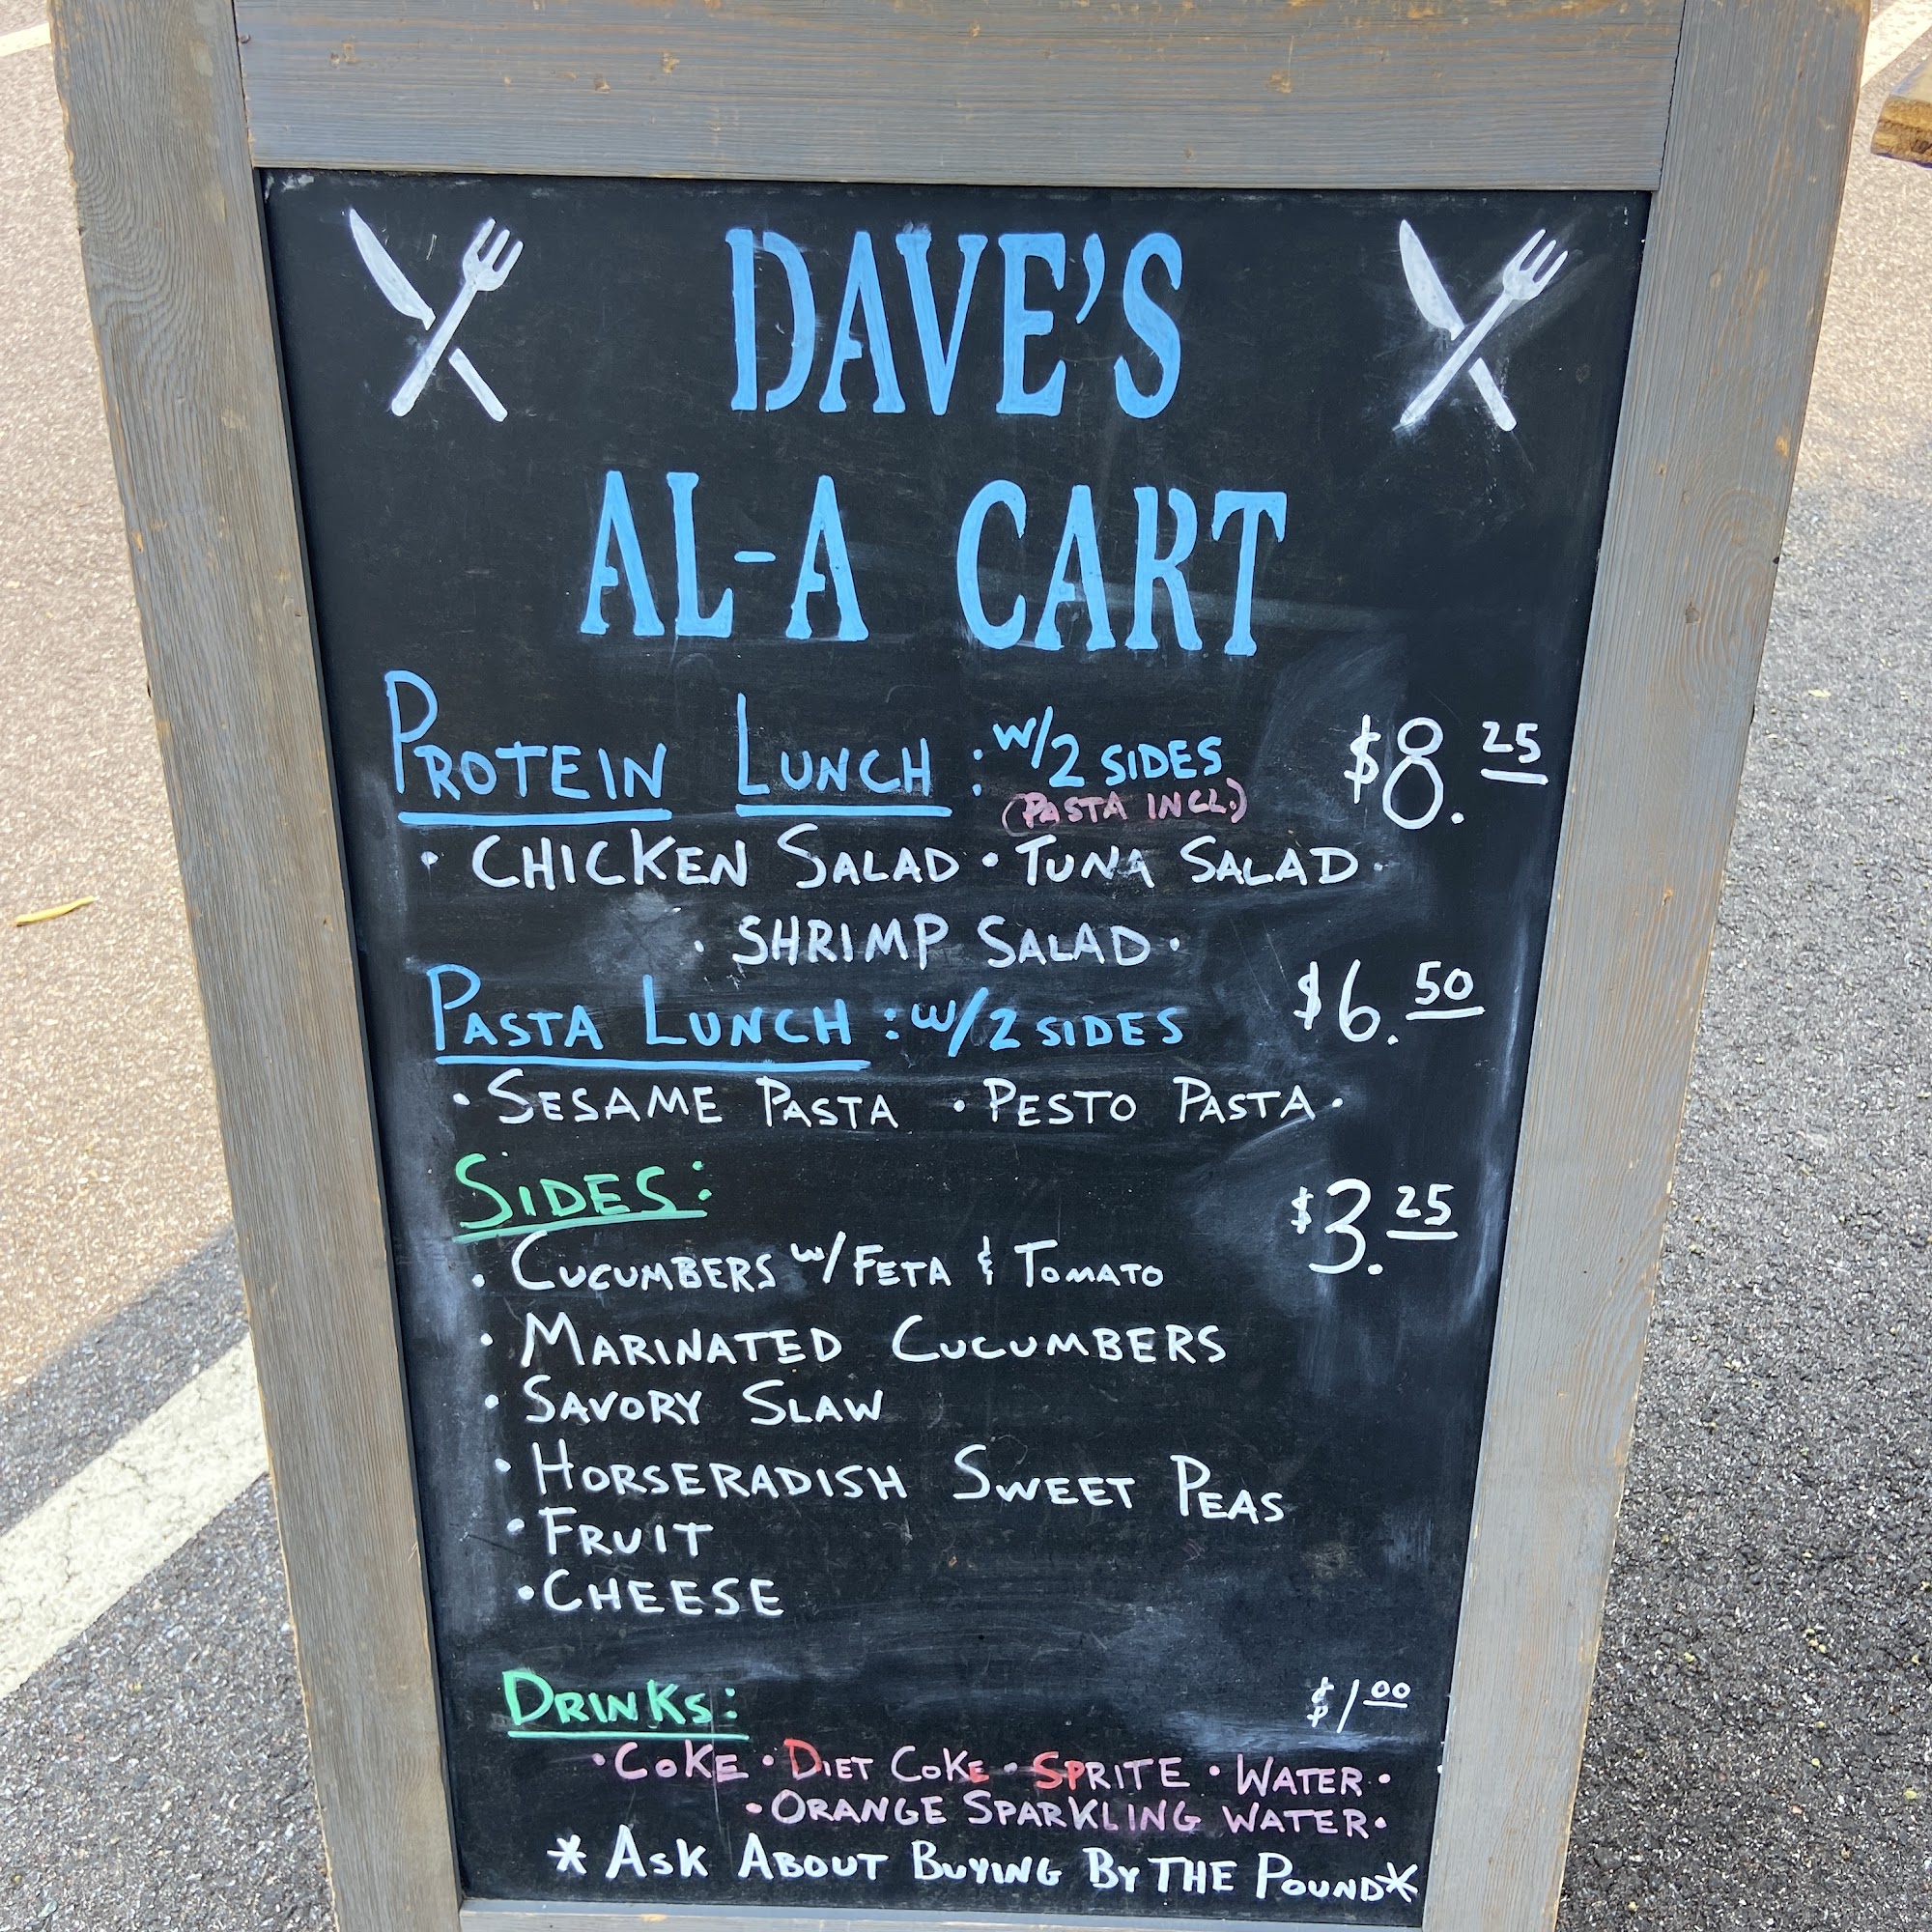 DAVE'S
AL-A CART
PROTEIN LUNCH : W/2 SIDES $8.25
(PASTA INCL.)
• CHICKEN SALAD • TUNA SALAD •
• SHRIMP SALAD •
PASTA LUNCH : W/2 SIDES $6.50
• SESAME PASTA • PESTO PASTA •
SIDES: $3.25
• CUCUMBERS W/ FETA & TOMATO
• MARINATED CUCUMBERS
• SAVORY SLAW
• HORSERADISH SWEET PEAS
• FRUIT
• CHEESE
DRINKS: $1.00
• COKE • DIET COKE • SPRITE • WATER •
• ORANGE SPARKLING WATER •
* ASK ABOUT BUYING BY THE POUND *